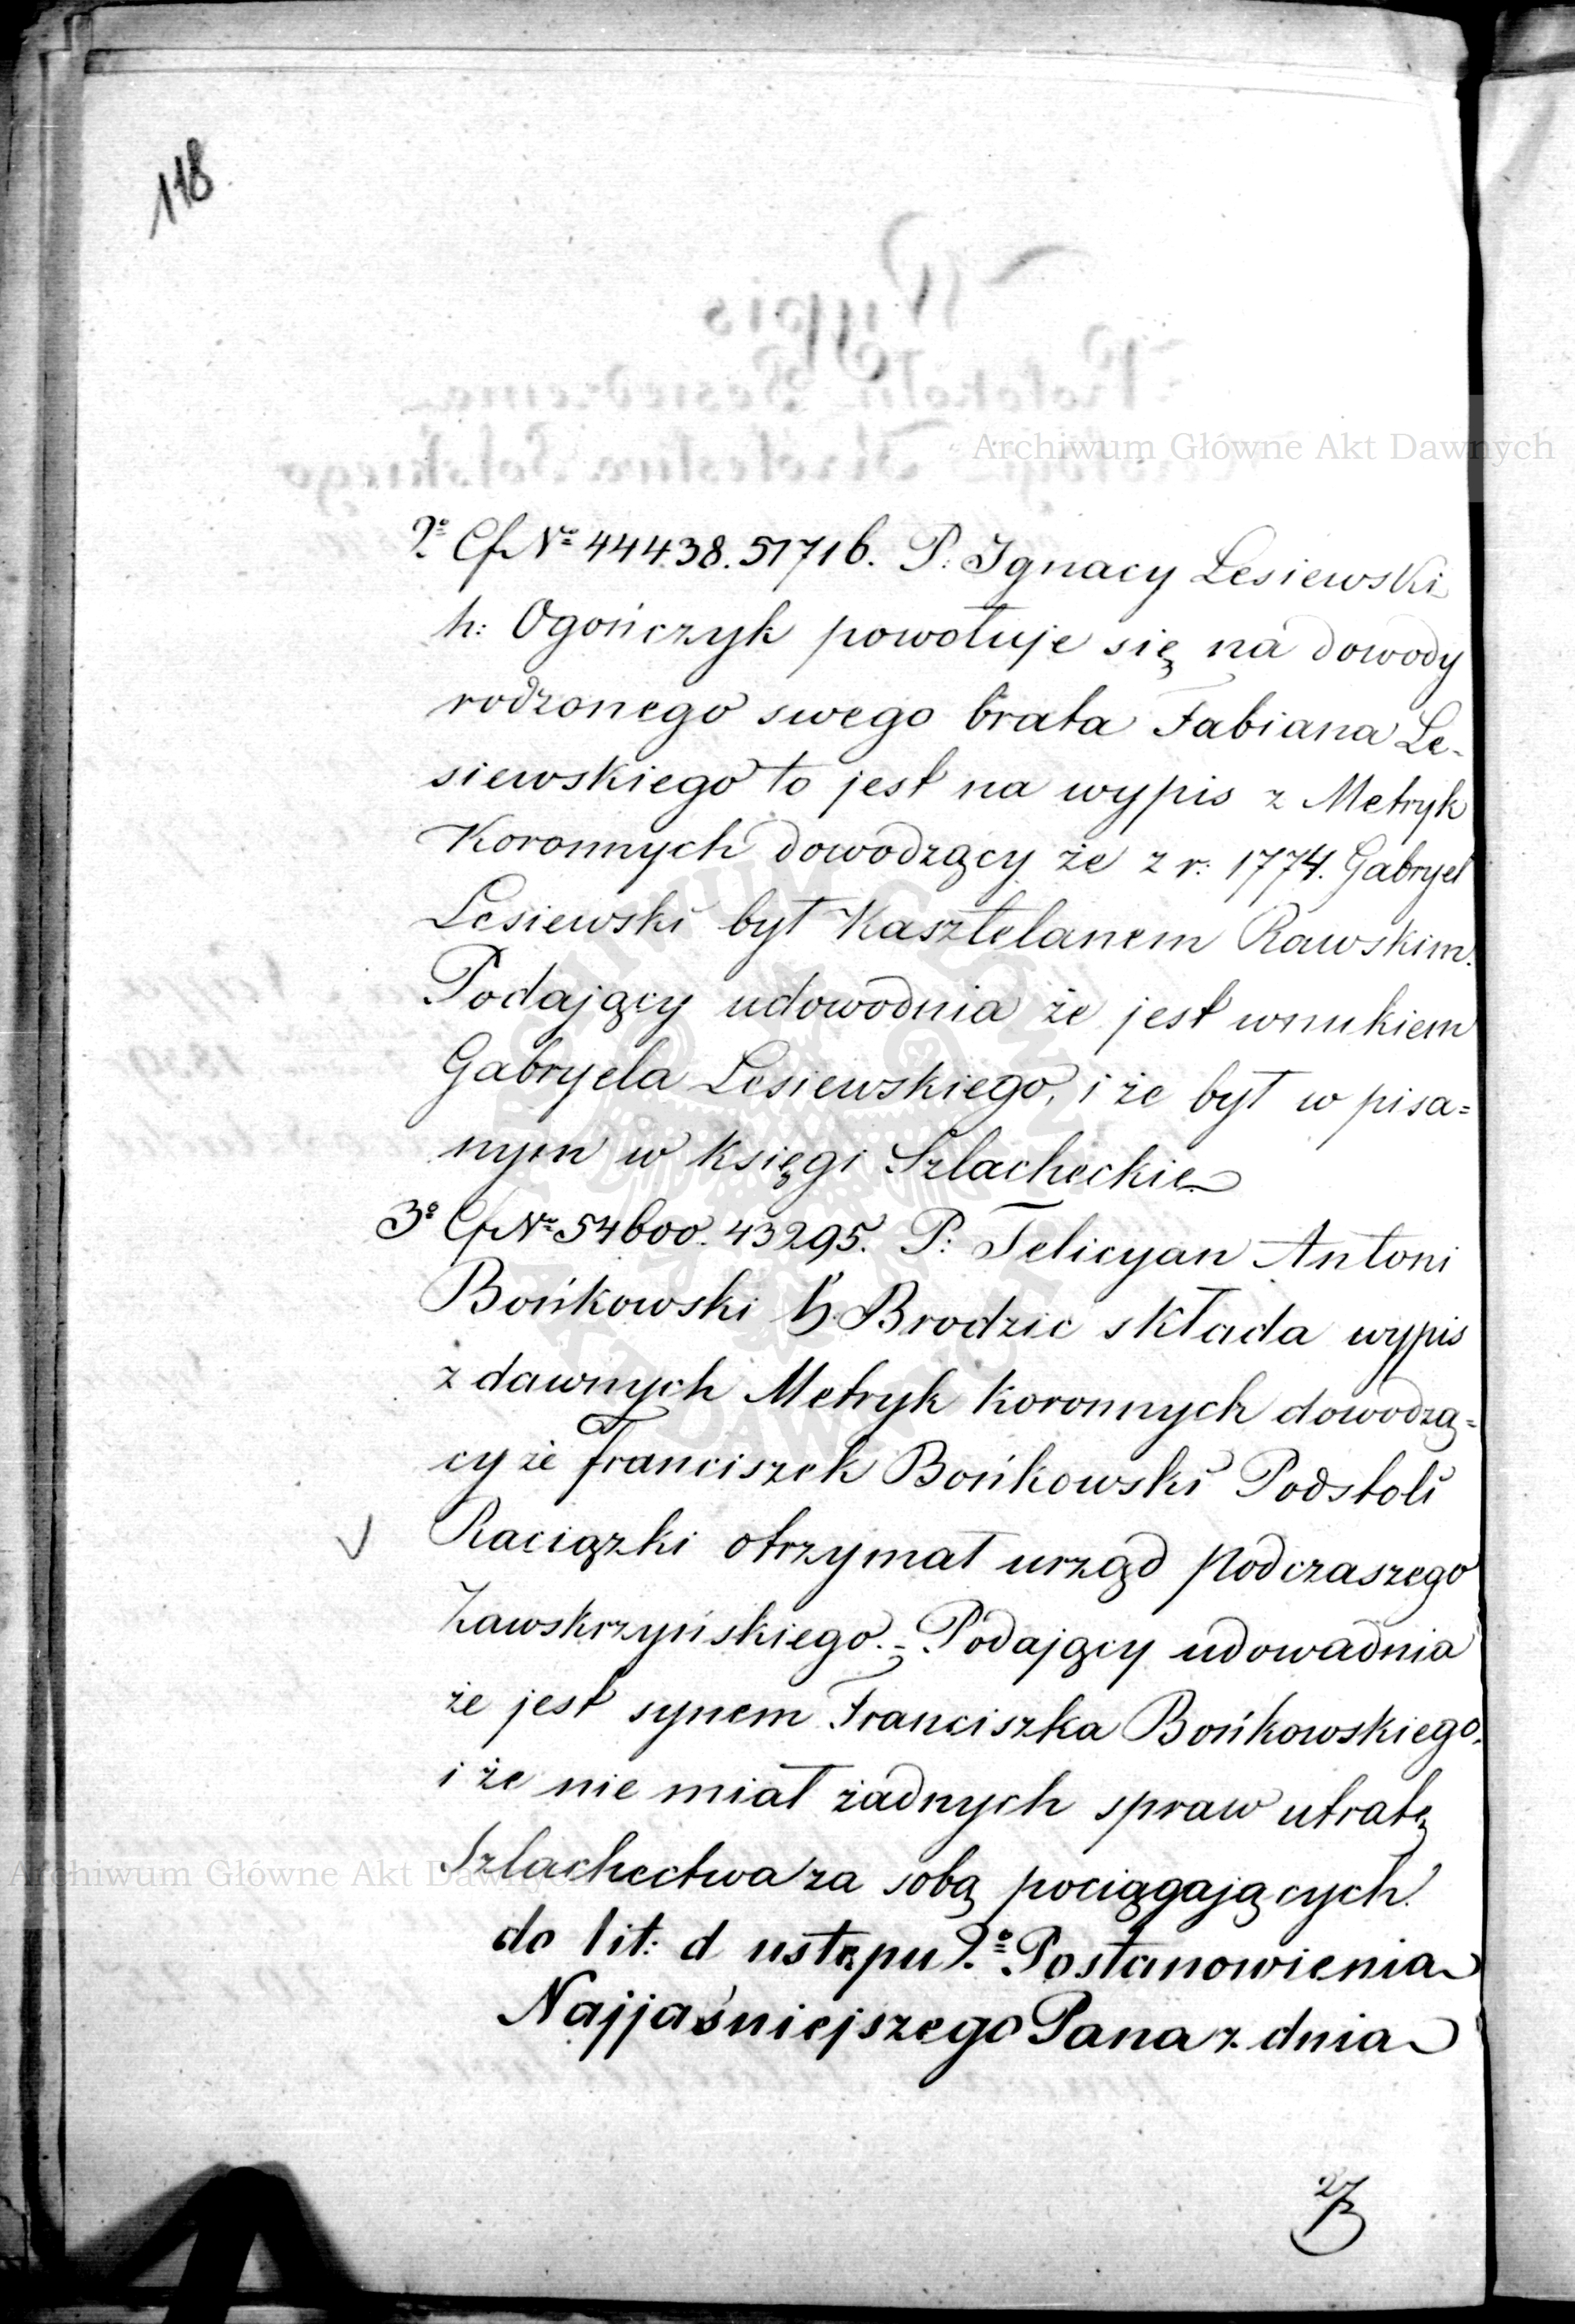 118
2º Cf Nº 44438.51716. P: Ignacy Lesiewski
h: Ogończyk powołuje się na dowody
rodzonego swego brata Fabiana Le-
siewskiego to jest na wypis z Metryk
Koronnych dowodzący że z r: 1774. Gabryel
Lesiewski był Kasztelanem Rawskim.
Podający udowodnia że jest wnukiem
Gabryela Lesiewskiego, i że był w pisa=
nym w księgi Szlacheckie
3º Cf Nº 54600. 43295. P: Felicyan Antoni
Bońkowski h Brodzic składa wypis
z dawnych Metryk Koronnych dowodzą=
cy że Franciszek Bońkowski Podstoli
Raciązki otrzymał urząd Podczaszego
Zawskrzyńskiego. - Podający udowadnia
że jest synem Franciszka Bońkowskiego,
i że nie miał żadnych spraw utratę
Szlachectwa za sobą pociągających.
do lit: d ustępu 2º Postanowienia
Najjaśniejszego Pana z dnia
Archiwum Główne Akt Dawnych
Archiwum Główne Akt Dawnych